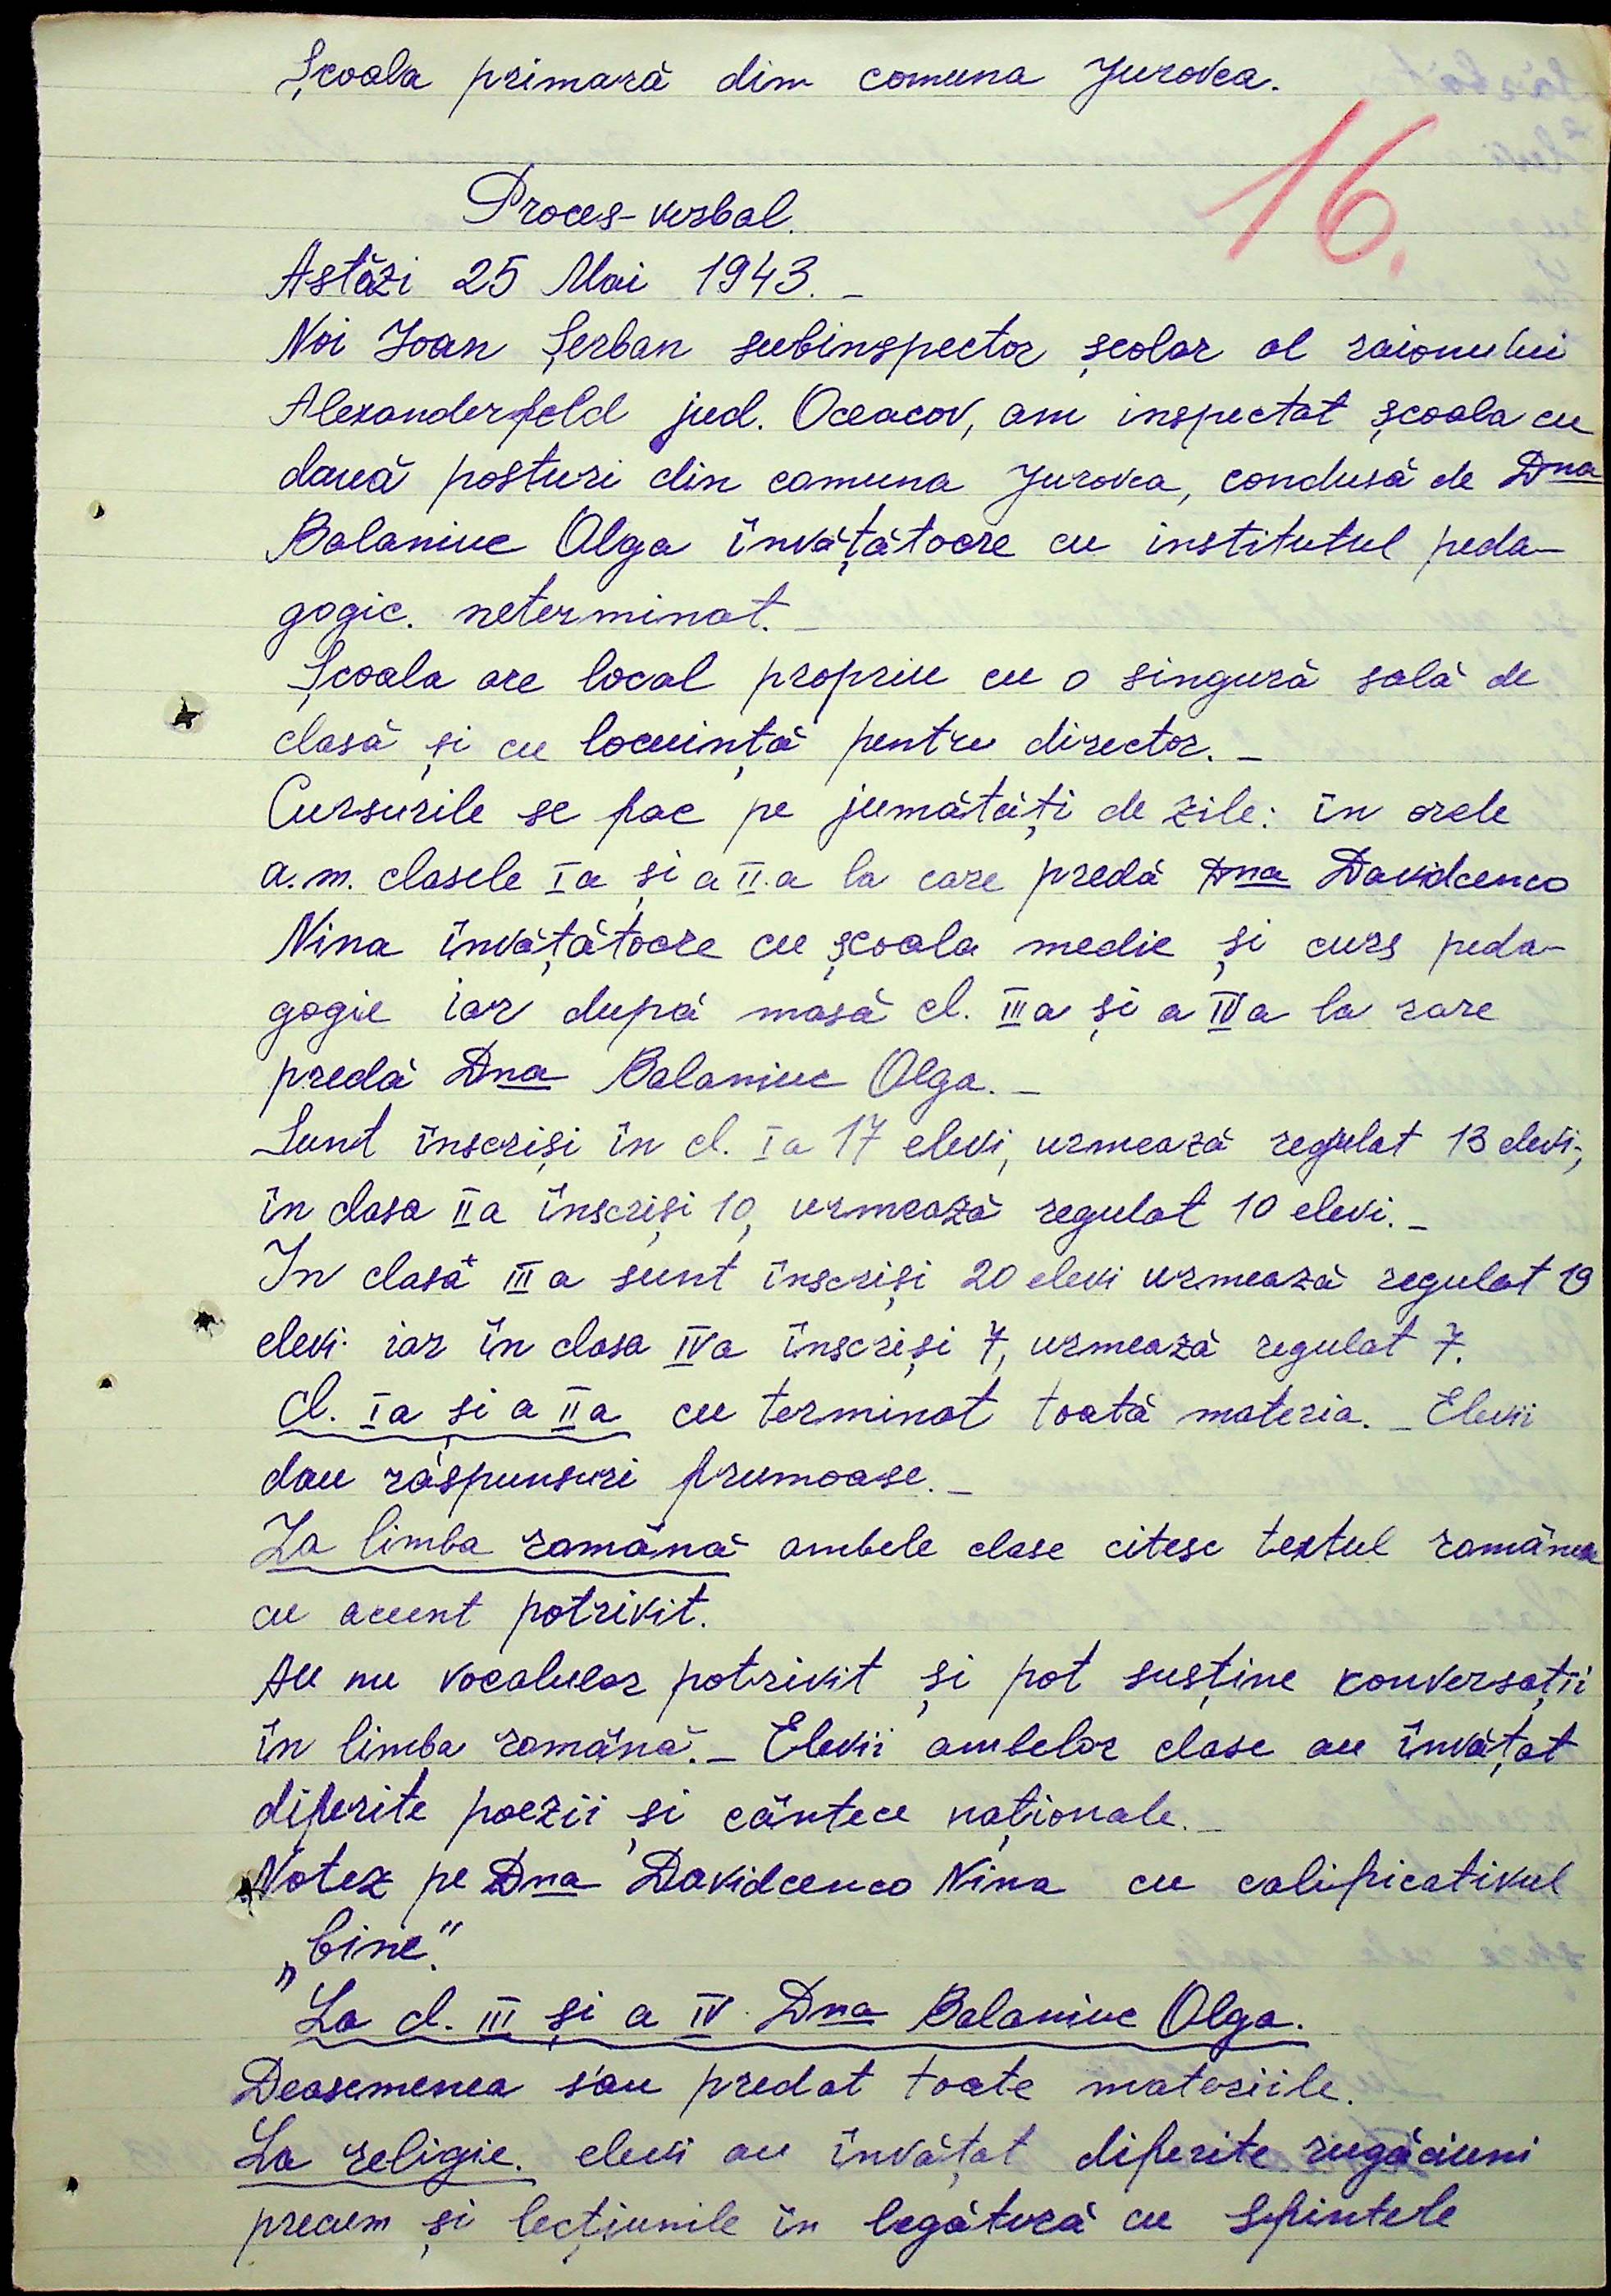 Școala primară dim comuna Jurovca.
16.
Proces-verbal.
Astăzi 25 Mai 1943. _
Noi Ioan Șerban subinspector școlar al raionului
Alexanderfeld jud. Oceacov, am inspectat școala cu
două posturi din comuna Jurovca, condusă de Dna
Balaniuc Olga învățătoare cu institutul peda-
gogic. neterminat. _
Școala are local propriu cu o singură sală de
clasă și cu locuință pentru director. _
Cursurile se fac pe jumătăți de zile: în orele
a.m. clasele Ia și a II.a la care predă Dna Davidcenco
Nina învățătoare cu școala medie și curs peda-
gogic iar după masă cl. IIIa și a IVa la care
predă Dna Balaniuc Olga. _
Sunt înscriși în cl. Ia 17 elevi, urmează regulat 13 elevi;
în clasa IIa înscriși 10, urmează regulat 10 elevi. _
În clasă IIIa sunt înscriși 20 elevi urmează regulat 19
elevi iar în clasa IVa înscriși 7, urmează regulat 7.
Cl. Ia și a IIa au terminat toată materia. _ Elevii
dau răspunsuri frumoase. _
La limba română ambele clase citesc textul
cu accent potrivit.
Au nu vocabular potrivit și pot susține conversații
în limba română. _ Elevii ambelor clase au învățat
diferite poezii și cântece naționale. _
Notez pe Dna Davidcenco Nina cu calificativul
„bine".
La cl. III și a IV. Dna Balaniuc Olga.
Deasemenea s'au predat toate materiile.
La religie. elevi au învățat diferite rugăciuni
precum și lecțiunile în legătură cu Sfintele